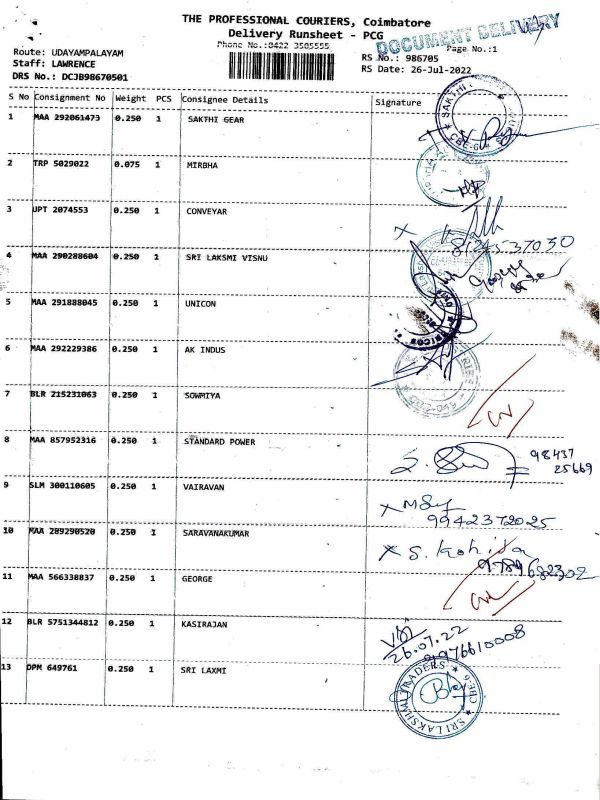 THE PROFESSIONAL COURIERS, Coimbatore
Delivery Runsheet - PCG
Phone No.:0422 3505555
DOCUMENT DELIVERY
Page No.:1
Route: UDAYAMPALAYAM
Staff: LAWRENCE
DRS No.: DCJB98670501
RS No.: 986705
RS Date: 26-Jul-2022
S No Consignment No Weight PCS Consignee Details Signature
1 MAA 292061473 0.250 1 SAKTHI GEAR
SAKTHI
2 TRP 5029022 0.075 1 MIRBHA
3 JPT 2074553 0.250 1 CONVEYAR
8124537030
4 MAA 290288604 0.250 1 SRI LAKSMI VISNU
5 MAA 291888045 0.250 1 UNICON
6 MAA 292229386 0.250 1 AK INDUS
7 BLR 215231063 0.250 1 SOWMIYA
8 MAA 857952316 0.250 1 STANDARD POWER
98437
25669
9 SLM 300110605 0.250 1 VAIRAVAN
9942372025
10 MAA 289290520 0.250 1 SARAVANAKUMAR
x S. Kohila
11 MAA 566338837 0.250 1 GEORGE
12 BLR 5751344812 0.250 1 KASIRAJAN
26.07.22
9976610008
13 DPM 649761 0.250 1 SRI LAXMI
SRI LAKSHMI TRADERS
CBE-6